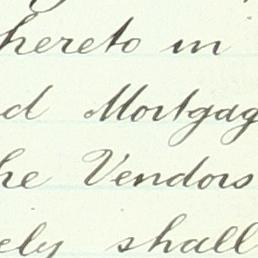 hereto in
d Mortgag
he Vendors
ely shall